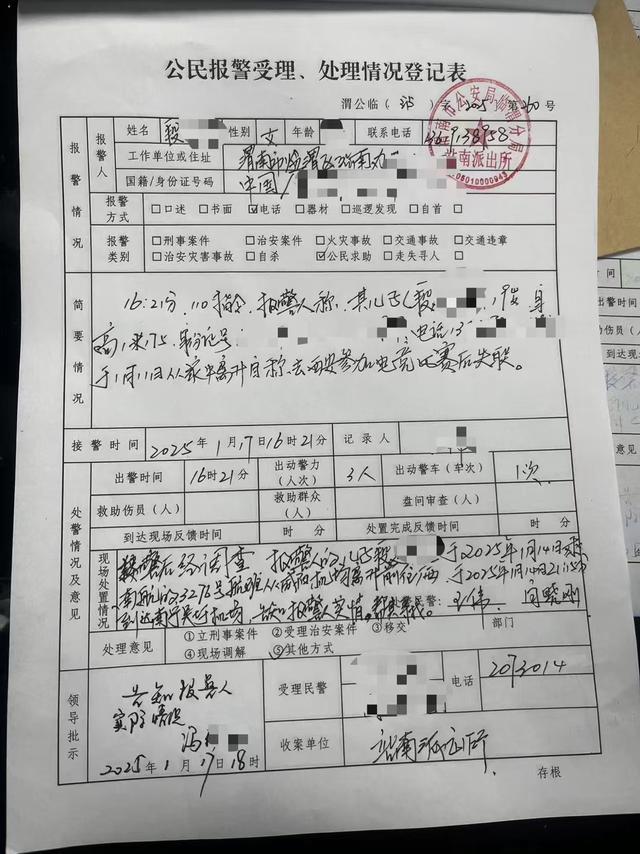 公民报警受理、处理情况登记表
渭公临（站）字2025第260号
渭南市公安局临渭分局
站南派出所
报警情况
报警人
姓名 段 性别 女 年龄 联系电话
工作单位或住址 渭南市临渭区站南办
国籍/身份证号码 中国/
报警方式 □口述 □书面 ☑电话 □器材 □巡逻发现 □自首 □
报警类别 □刑事案件 □治安案件 □火灾事故 □交通事故 □交通违章
□治安灾害事故 □自杀 ☑公民求助 □走失寻人 □
简要情况
16:21分，110指令，报警人称，其儿子段 ，19岁，身
高1米75，身份证号 ，电话13
于1月11日从家中离开自称去西安参加电竞比赛后失联。
接警时间 2025年1月17日16时21分 记录人
处警情况及意见
出警时间 16时21分 出动警力（人次） 3人 出动警车（车次） 1次
救助伤员（人） 救助群众（人） 盘问审查（人）
到达现场反馈时间 时 分 处置完成反馈时间 时 分
现场处置情况
接警后经调查，报警人的儿子段 于2025年1月14日乘
南航 3276号航班从咸阳机场离开前往 于2025年1月14日21时15分
到达南宁吴圩机场，告知报警人实情。 民警：王伟
处理意见 ①立刑事案件 ②受理治安案件 ③移交 部门
④现场调解 ⑤其他方式
领导批示
告知报警人
实际情况
冯
2025年1月17日18时
受理民警 电话 2073014
收案单位 站南派出所
存根